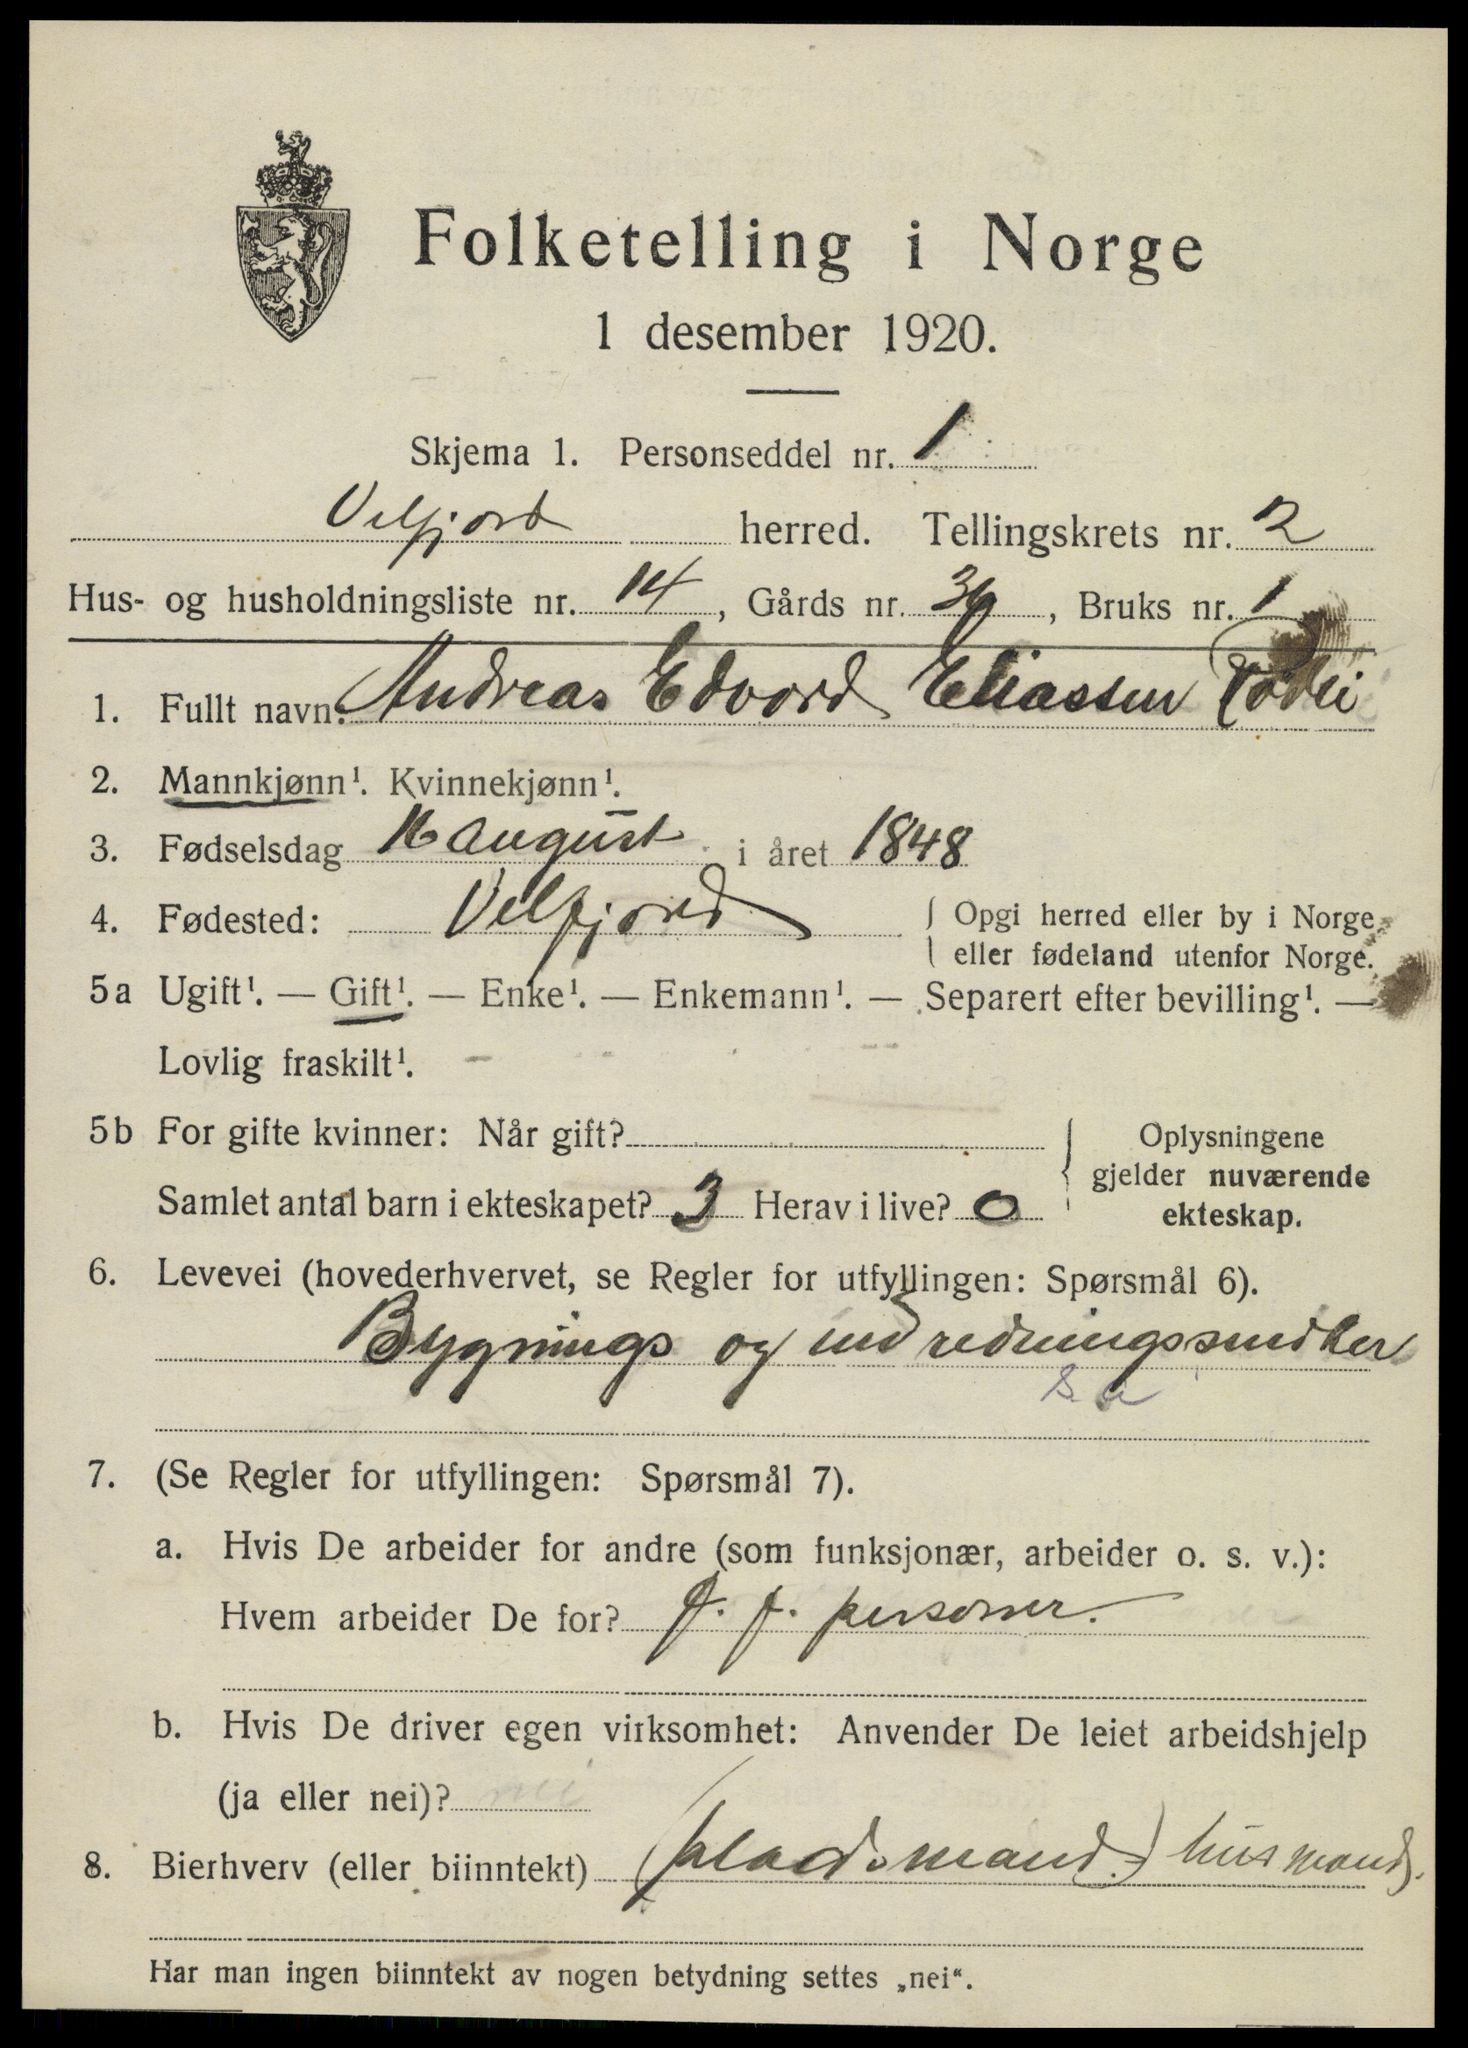 Folketelling i Norge
1 desember 1920.
Skjema 1. Personseddel nr. 1
Velfjord herred. Tellingskrets nr. 2
Hus- og husholdningsliste nr. 14, Gårds nr. 36, Bruks nr. 1
1. Fullt navn: Andreas Edvard Eliassen
2. Mannkjønn¹. Kvinnekjønn¹.
3. Fødselsdag 16 august i året 1848
4. Fødested: Velfjord { Opgi herred eller by i Norge
eller fødeland utenfor Norge.
5a Ugift¹. — Gift¹. — Enke¹. — Enkemann¹. — Separert efter bevilling¹. —
Lovlig fraskilt¹.
5b For gifte kvinner: Når gift?
Samlet antal barn i ekteskapet? 3 Herav i live? 0
Oplysningene
gjelder nuværende
ekteskap.
6. Levevei (hovederhvervet, se Regler for utfyllingen: Spørsmål 6).
Bygnings og indredningssnedker
7. (Se Regler for utfyllingen: Spørsmål 7).
a. Hvis De arbeider for andre (som funksjonær, arbeider o. s. v.):
Hvem arbeider De for? f. f. personer.
b. Hvis De driver egen virksomhet: Anvender De leiet arbeidshjelp
(ja eller nei)? nei
8. Bierhverv (eller biinntekt) (pladsmand.) husmand.
Har man ingen biinntekt av nogen betydning settes „nei“.